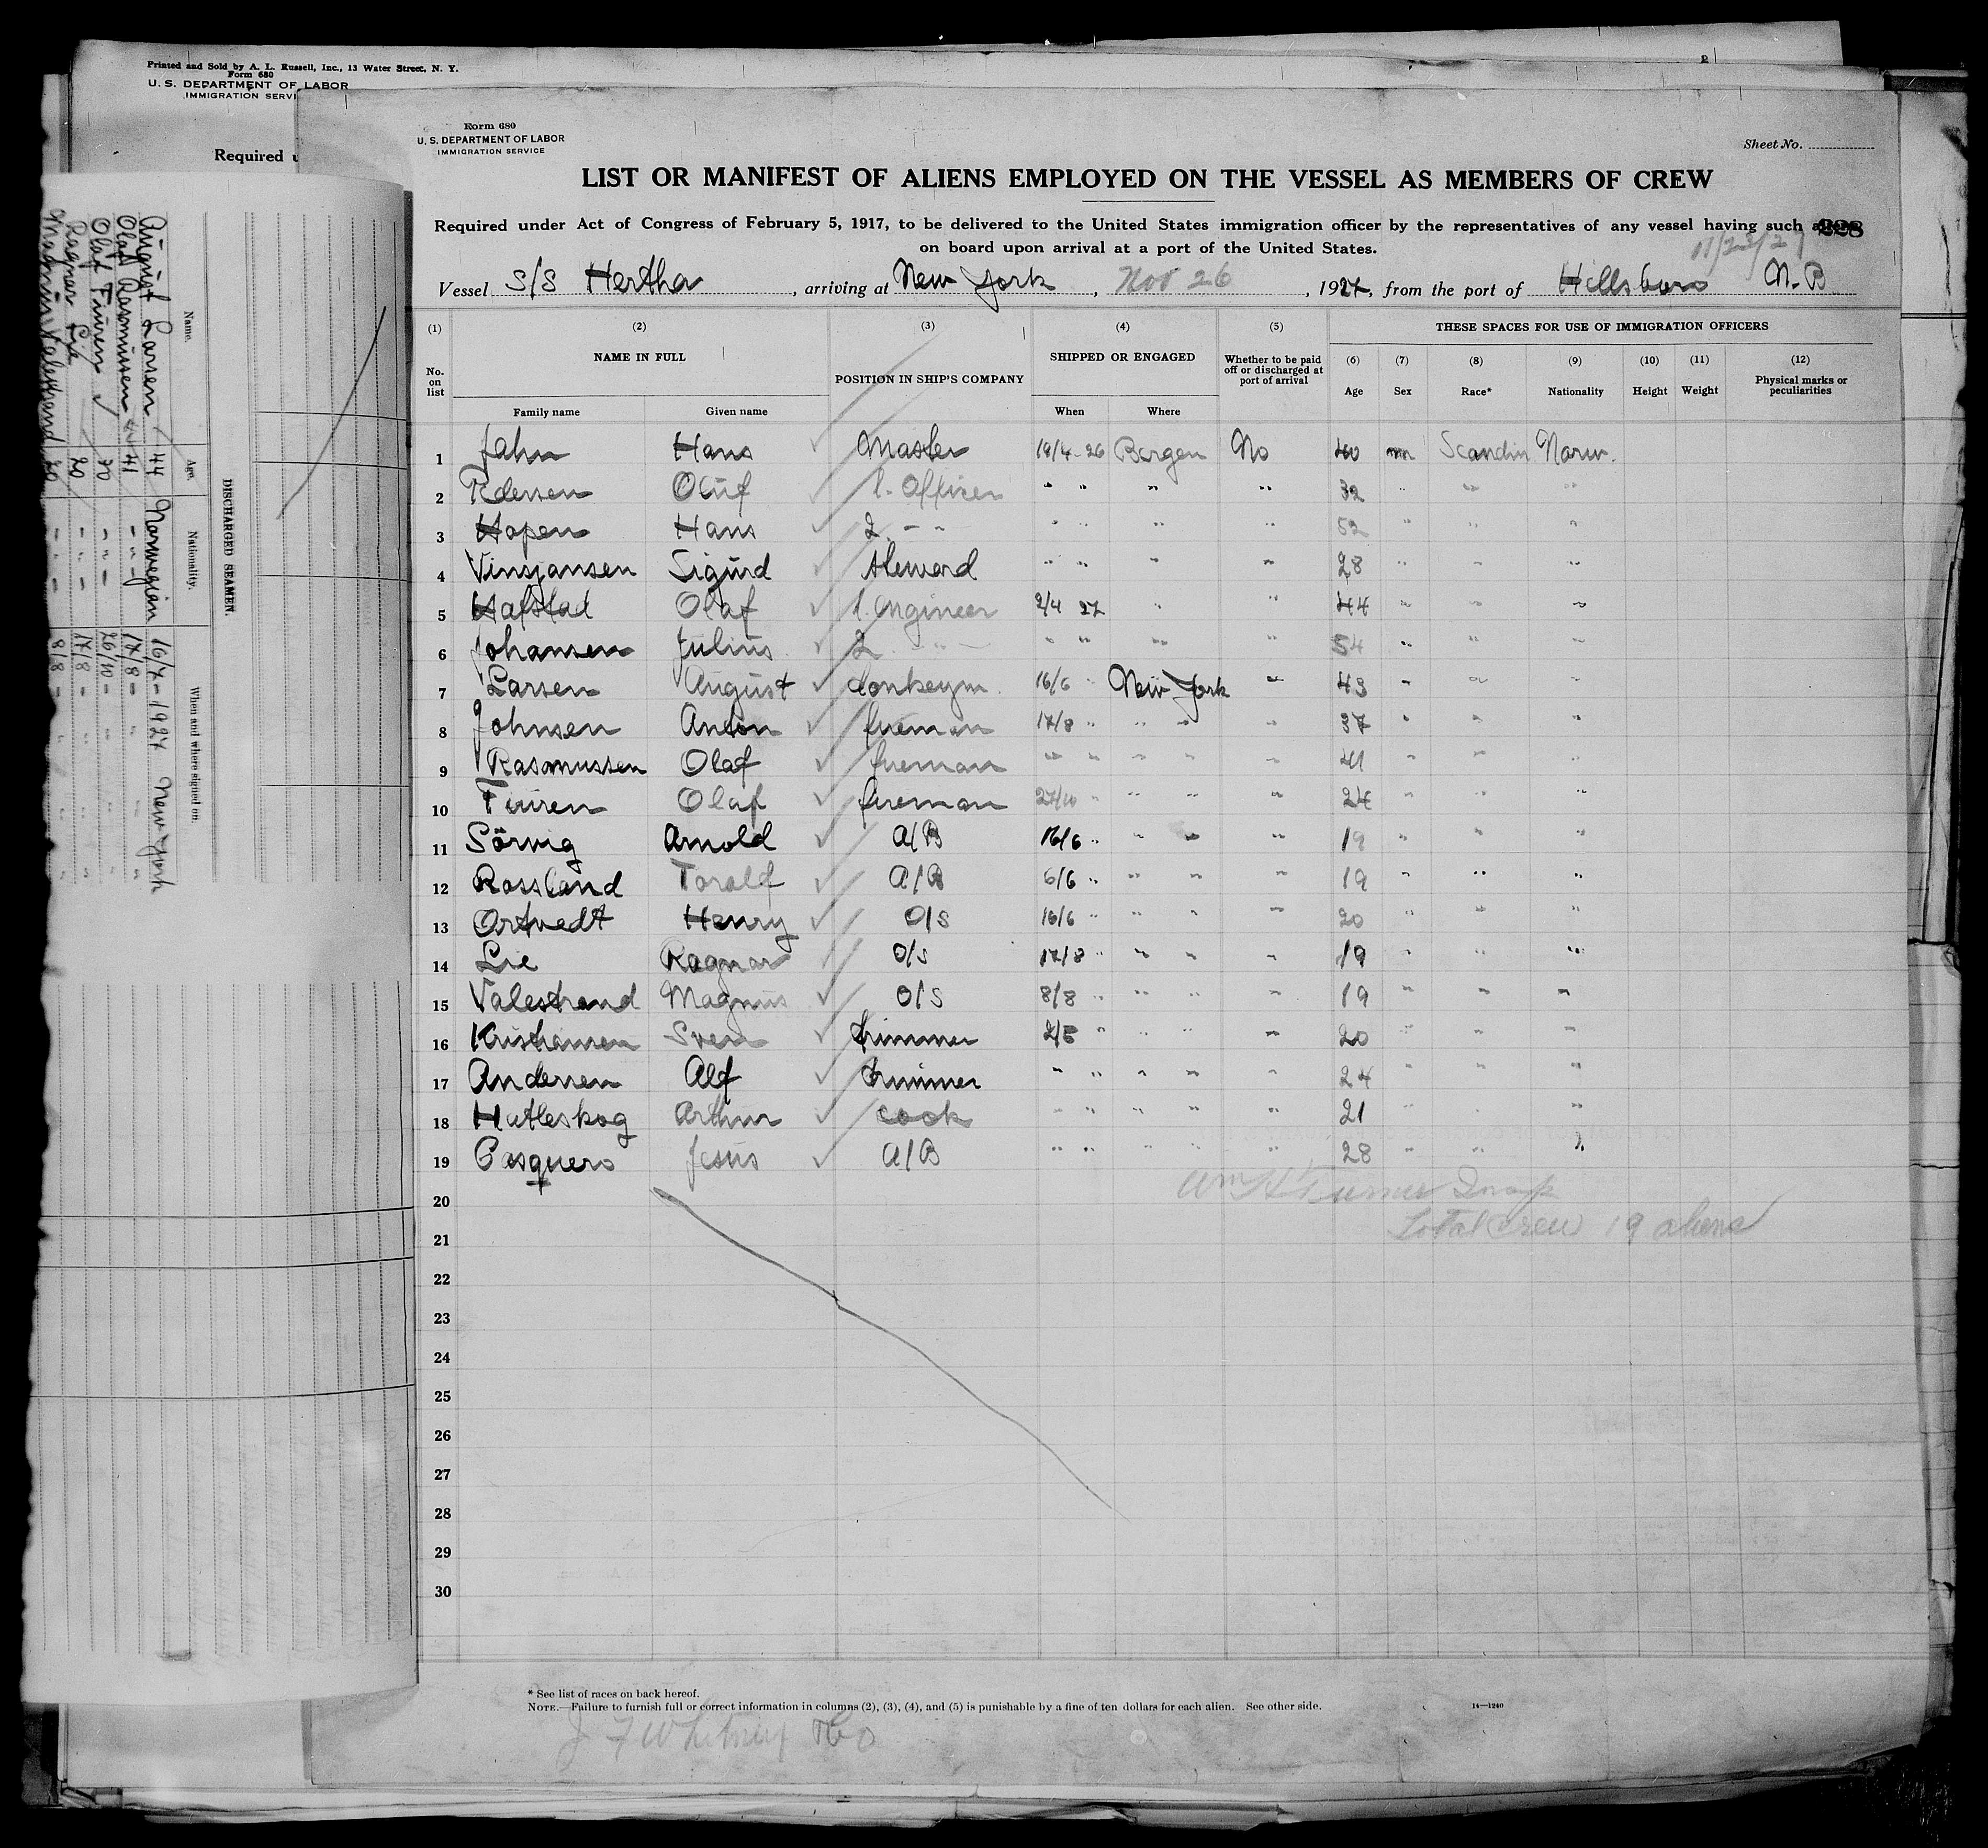 Printed and Sold by A. L. Russell, Inc., 13 Water Street, N. Y.
Form 680
U. S. DEPARTMENT OF LABOR
IMMIGRATION SERVI
Required u
DISCHARGED SEAMEN.
Name. Age. Nationality. When and where signed on.
August Larsen 44 Norwegian 16/7 - 1927 New York
Olaf Rasmussen 41 - " - 17/8 - " "
Olaf Tuiren 20 - " - 26/10 - " "
Ragnar Lie 20 - " - 17/8 - " "
Magnus Valestrand 20 - " - 8/8 - " "
Form 680
U. S. DEPARTMENT OF LABOR
IMMIGRATION SERVICE
Sheet No.
LIST OR MANIFEST OF ALIENS EMPLOYED ON THE VESSEL AS MEMBERS OF CREW
Required under Act of Congress of February 5, 1917, to be delivered to the United States immigration officer by the representatives of any vessel having such aliens
228
on board upon arrival at a port of the United States.
Vessel S/S Hertha, arriving at New York, Nov 26, 1927, from the port of Hillsboro N.B
(1) (2) (3) (4) (5) THESE SPACES FOR USE OF IMMIGRATION OFFICERS
No. on list NAME IN FULL POSITION IN SHIP'S COMPANY SHIPPED OR ENGAGED Whether to be paid off or discharged at port of arrival (6) Age (7) Sex (8) Race* (9) Nationality (10) Height (11) Weight (12) Physical marks or peculiarities
Family name Given name When Where
1 Jahn Hans Master 19/4-26 Bergen No 40 m Scandin Norw.
2 Pedersen Oluf 1. Officer " " " " 32 " " "
3 Hopen Hans 2 - " " " " " 52 " " "
4 Vinsjansen Sigurd Steward " " " " 28 " " "
5 Hafstad Olaf 1. Engineer 2/4 27 " " 44 " " "
6 Johansen Julius 2 - " - " " " " 54 " " "
7 Larsen August donkeym. 16/6 " New York " 43 " " "
8 Johnsen Anton fireman 17/8 " " " " 37 " " "
9 Rasmussen Olaf fireman " " " " " 41 " " "
10 Tuiren Olaf fireman 27/10 " " " " 24 " " "
11 Sörvig Arnold A/B 16/6 " " " " 19 " " "
12 Rossland Toralf A/B 6/6 " " " " 19 " " "
13 Ortvedt Henry O/S 16/6 " " " " 20 " " "
14 Lie Ragnar O/S 17/8 " " " " 19 " " "
15 Valestrand Magnus O/S 8/8 " " " " 19 " " "
16 Kristiansen Sven trimmer 2/5 " " " " 20 " " "
17 Andersen Alf trimmer " " " " " 24 " " "
18 Hutleskog Arthur cook " " " " " 21 " " "
19 Pasquero Jesus A/B " " " " " 28 " " "
20 Wm H Turner Insp
21 Total Crew 19 aliens
22
23
24
25
26
27
28
29
30
* See list of races on back hereof.
NOTE.—Failure to furnish full or correct information in columns (2), (3), (4), and (5) is punishable by a fine of ten dollars for each alien. See other side.
14—1240
J F Whitney & Co